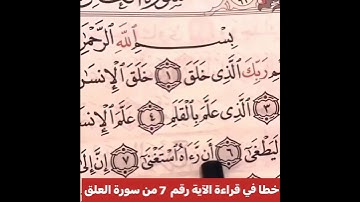 بِسْمِ اللَّهِ الرَّحْمَٰ
رَبِّكَ الَّذِي خَلَقَ ١ خَلَقَ الْإِنسَ
٣ الَّذِي عَلَّمَ بِالْقَلَمِ ٤ عَلَّمَ الْإِن
لَيَطْغَىٰ ٦ أَن رَّءَاهُ اسْتَغْنَىٰ ٧ إِنَّ إِلَىٰ
خطا في قراءة الآية رقم 7 من سورة العلق